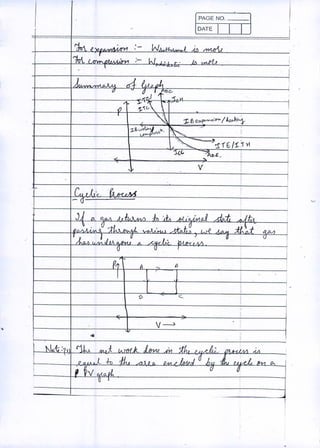 PAGE NO.
DATE
For expansion :- Wisothermal is more
For compression :- Wadiabatic is more
Summary of Graph
AEC
ITC
ICH
P
IB expansion/heating
IB cooling
compression
ITE/ITH
ICC
ADE
V
Cyclic Process
If a gas returns to its original state after
passing through various states, we say that gas
has undergone a cyclic process.
P↑
A B
D C
V →
Note:- The net work done in the cyclic process is
equal to the area enclosed by the cycle on a
PV graph.